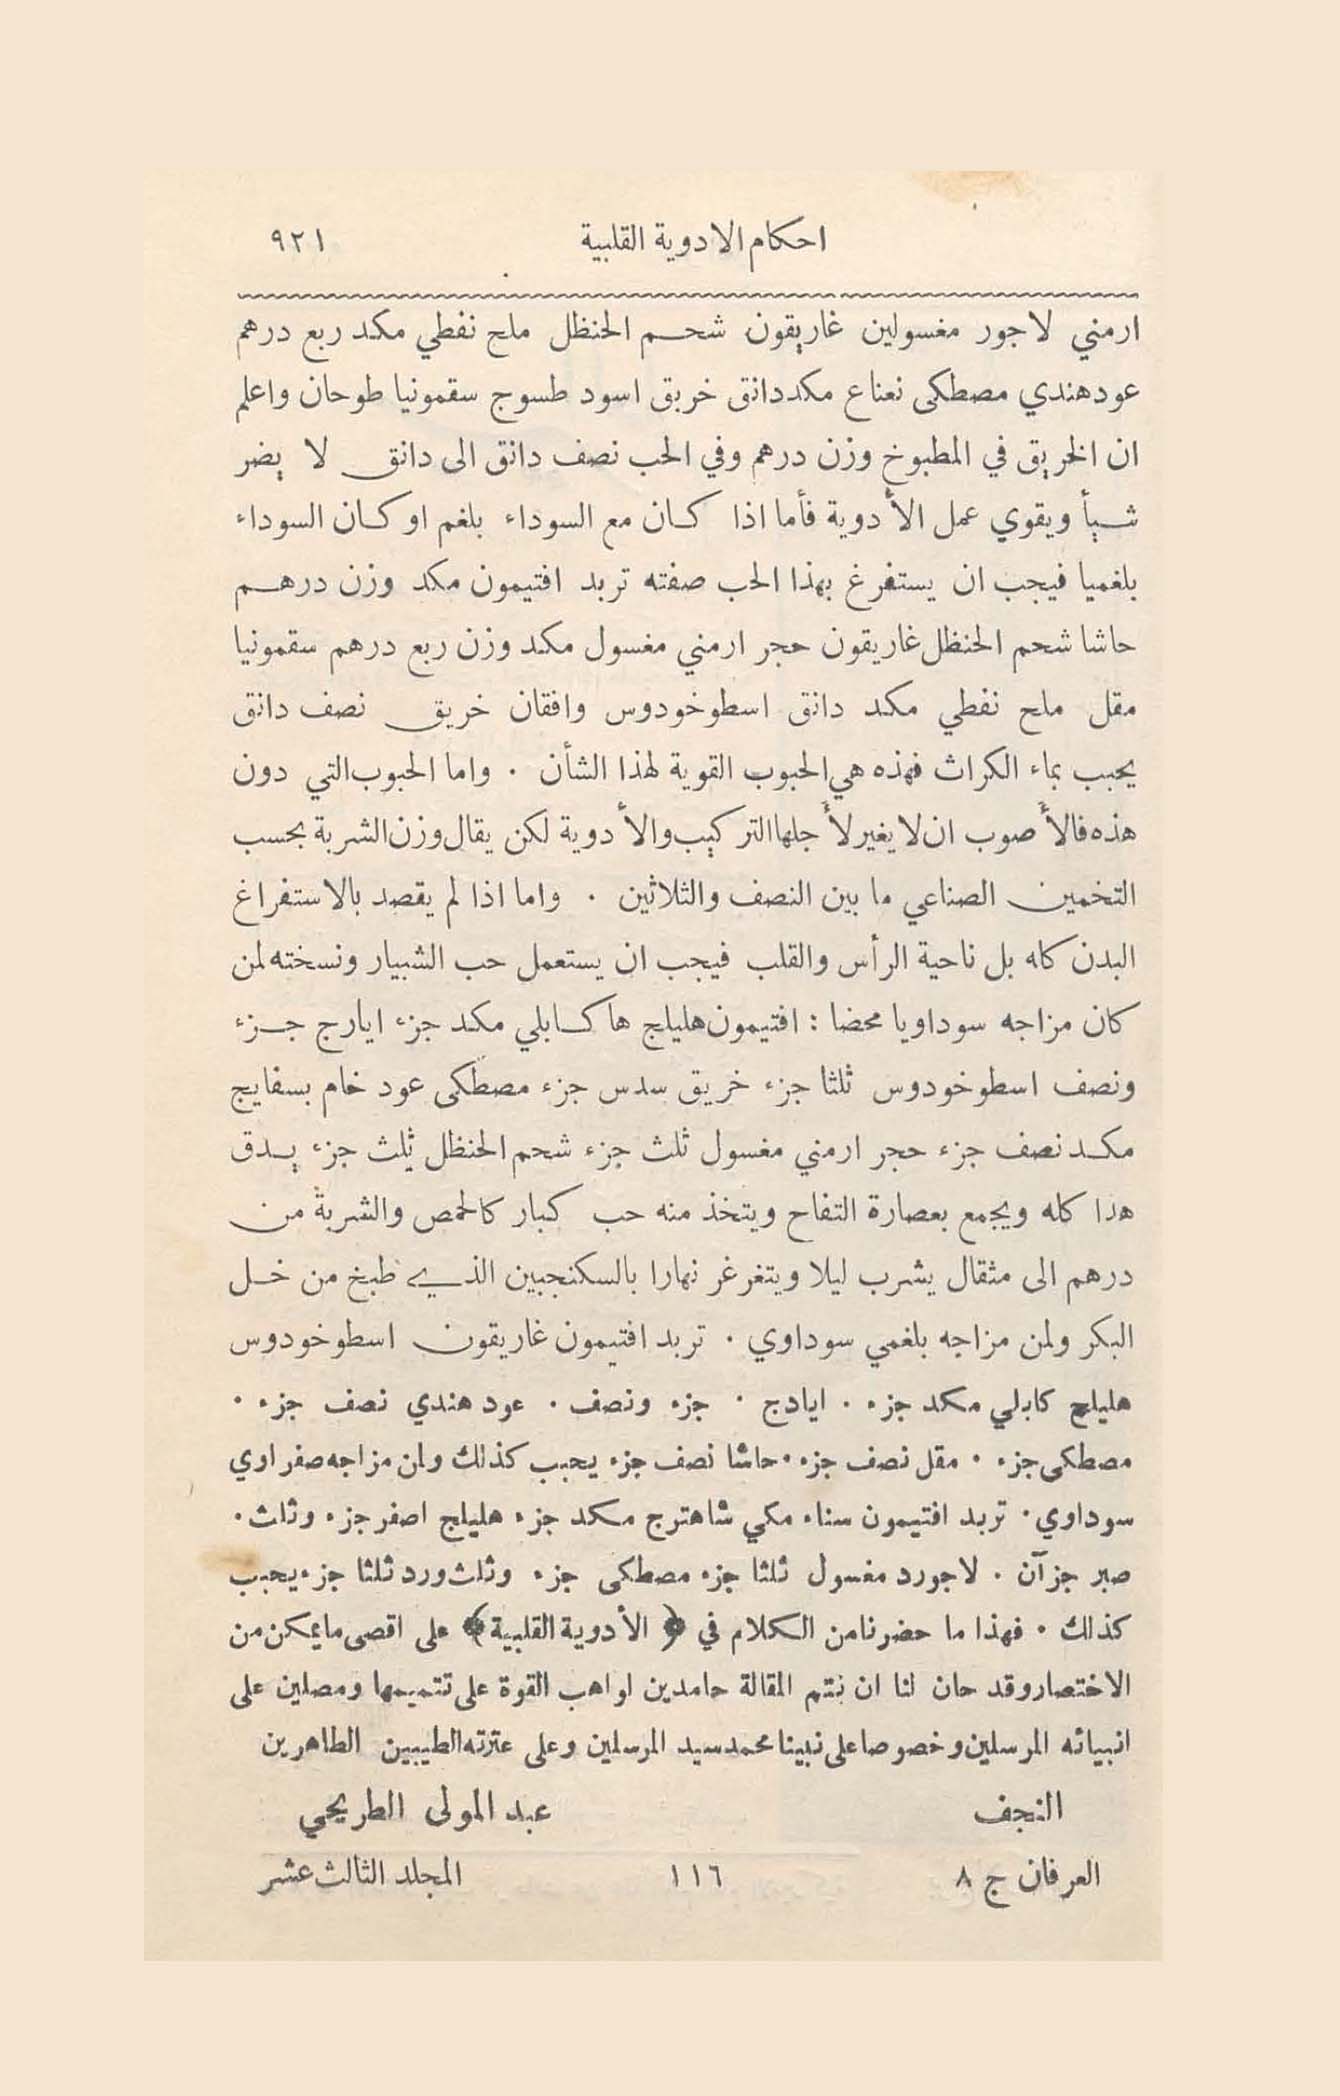 احكام الادوية القلبية ٩٢١
ارمني لاجور مغسولين غاريقون شحم الحنظل ملح نفطي مكد ربع درهم
عود هندي مصطكى نعناع مكد دانق خربق اسود طسوج سقمونيا طوحان واعلم
ان الخريق في المطبوخ وزن درهم وفي الحب نصف دانق الى دانق لا يضر
شيأ ويقوي عمل الأدوية فأما اذا كان مع السوداء بلغم او كان السوداء
بلغميا فيجب ان يستفرغ بهذا الحب صفته تربد افتيمون مكد وزن درهم
حاشا شحم الحنظل غاريقون حجر ارمني مغسول مكد وزن ربع درهم سقمونيا
مقل ملح نفطي مكد دانق اسطوخودوس وافقان خريق نصف دانق
يحبب بماء الكراث فهذه هي الحبوب القوية لهذا الشأن . واما الحبوب التي دون
هذه فالأصوب ان لا يغير لأجلها التركيب والأدوية لكن يقال وزن الشربة بحسب
التخمين الصناعي ما بين النصف والثلاثين . واما اذا لم يقصد بالاستفراغ
البدن كله بل ناحية الرأس والقلب فيجب ان يستعمل حب الشبيار ونسخته لمن
كان مزاجه سوداويا محضا : افتيمون هليلج ها كابلي مكد جزء ايارج جزء
ونصف اسطوخودوس ثلثا جزء خريق سدس جزء مصطكى عود خام بسفايج
مكد نصف جزء حجر ارمني مغسول ثلث جزء شحم الحنظل ثلث جزء يدق
هذا كله ويجمع بعصارة التفاح ويتخذ منه حب كبار كالحمص والشربة من
درهم الى مثقال يشرب ليلا ويتغرغر نهارا بالسكنجبين الذي طبخ من خل
البكر ولمن مزاجه بلغمي سوداوي . تربد افتيمون غاريقون اسطوخودوس
هليلج كابلي مكد جزء . ايادج . جزء ونصف . عود هندي نصف جزء .
مصطكى جزء . مقل نصف جزء . حاشا نصف جزء يحبب كذلك ولمن مزاجه صفراوي
سوداوي . تربد افتيمون سناء مكي شاهترج مكد جزء هليلج اصفر جزء وثلث .
صبر جزآن . لاجورد مغسول ثلثا جزء مصطكى جزء وثلث ورد ثلثا جزء يحبب
كذلك . فهذا ما حضرنا من الكلام في ﴿ الأدوية القلبية ﴾ على اقصى ما يمكن من
الاختصار وقد حان لنا ان نتم المقالة حامدين لواهب القوة على تتميمها ومصلين على
انبيائه المرسلين وخصوصا على نبينا محمد سيد المرسلين وعلى عترته الطيبين الطاهرين
النجف عبد المولى الطريحي
العرفان ج ٨ ١١٦ المجلد الثالث عشر